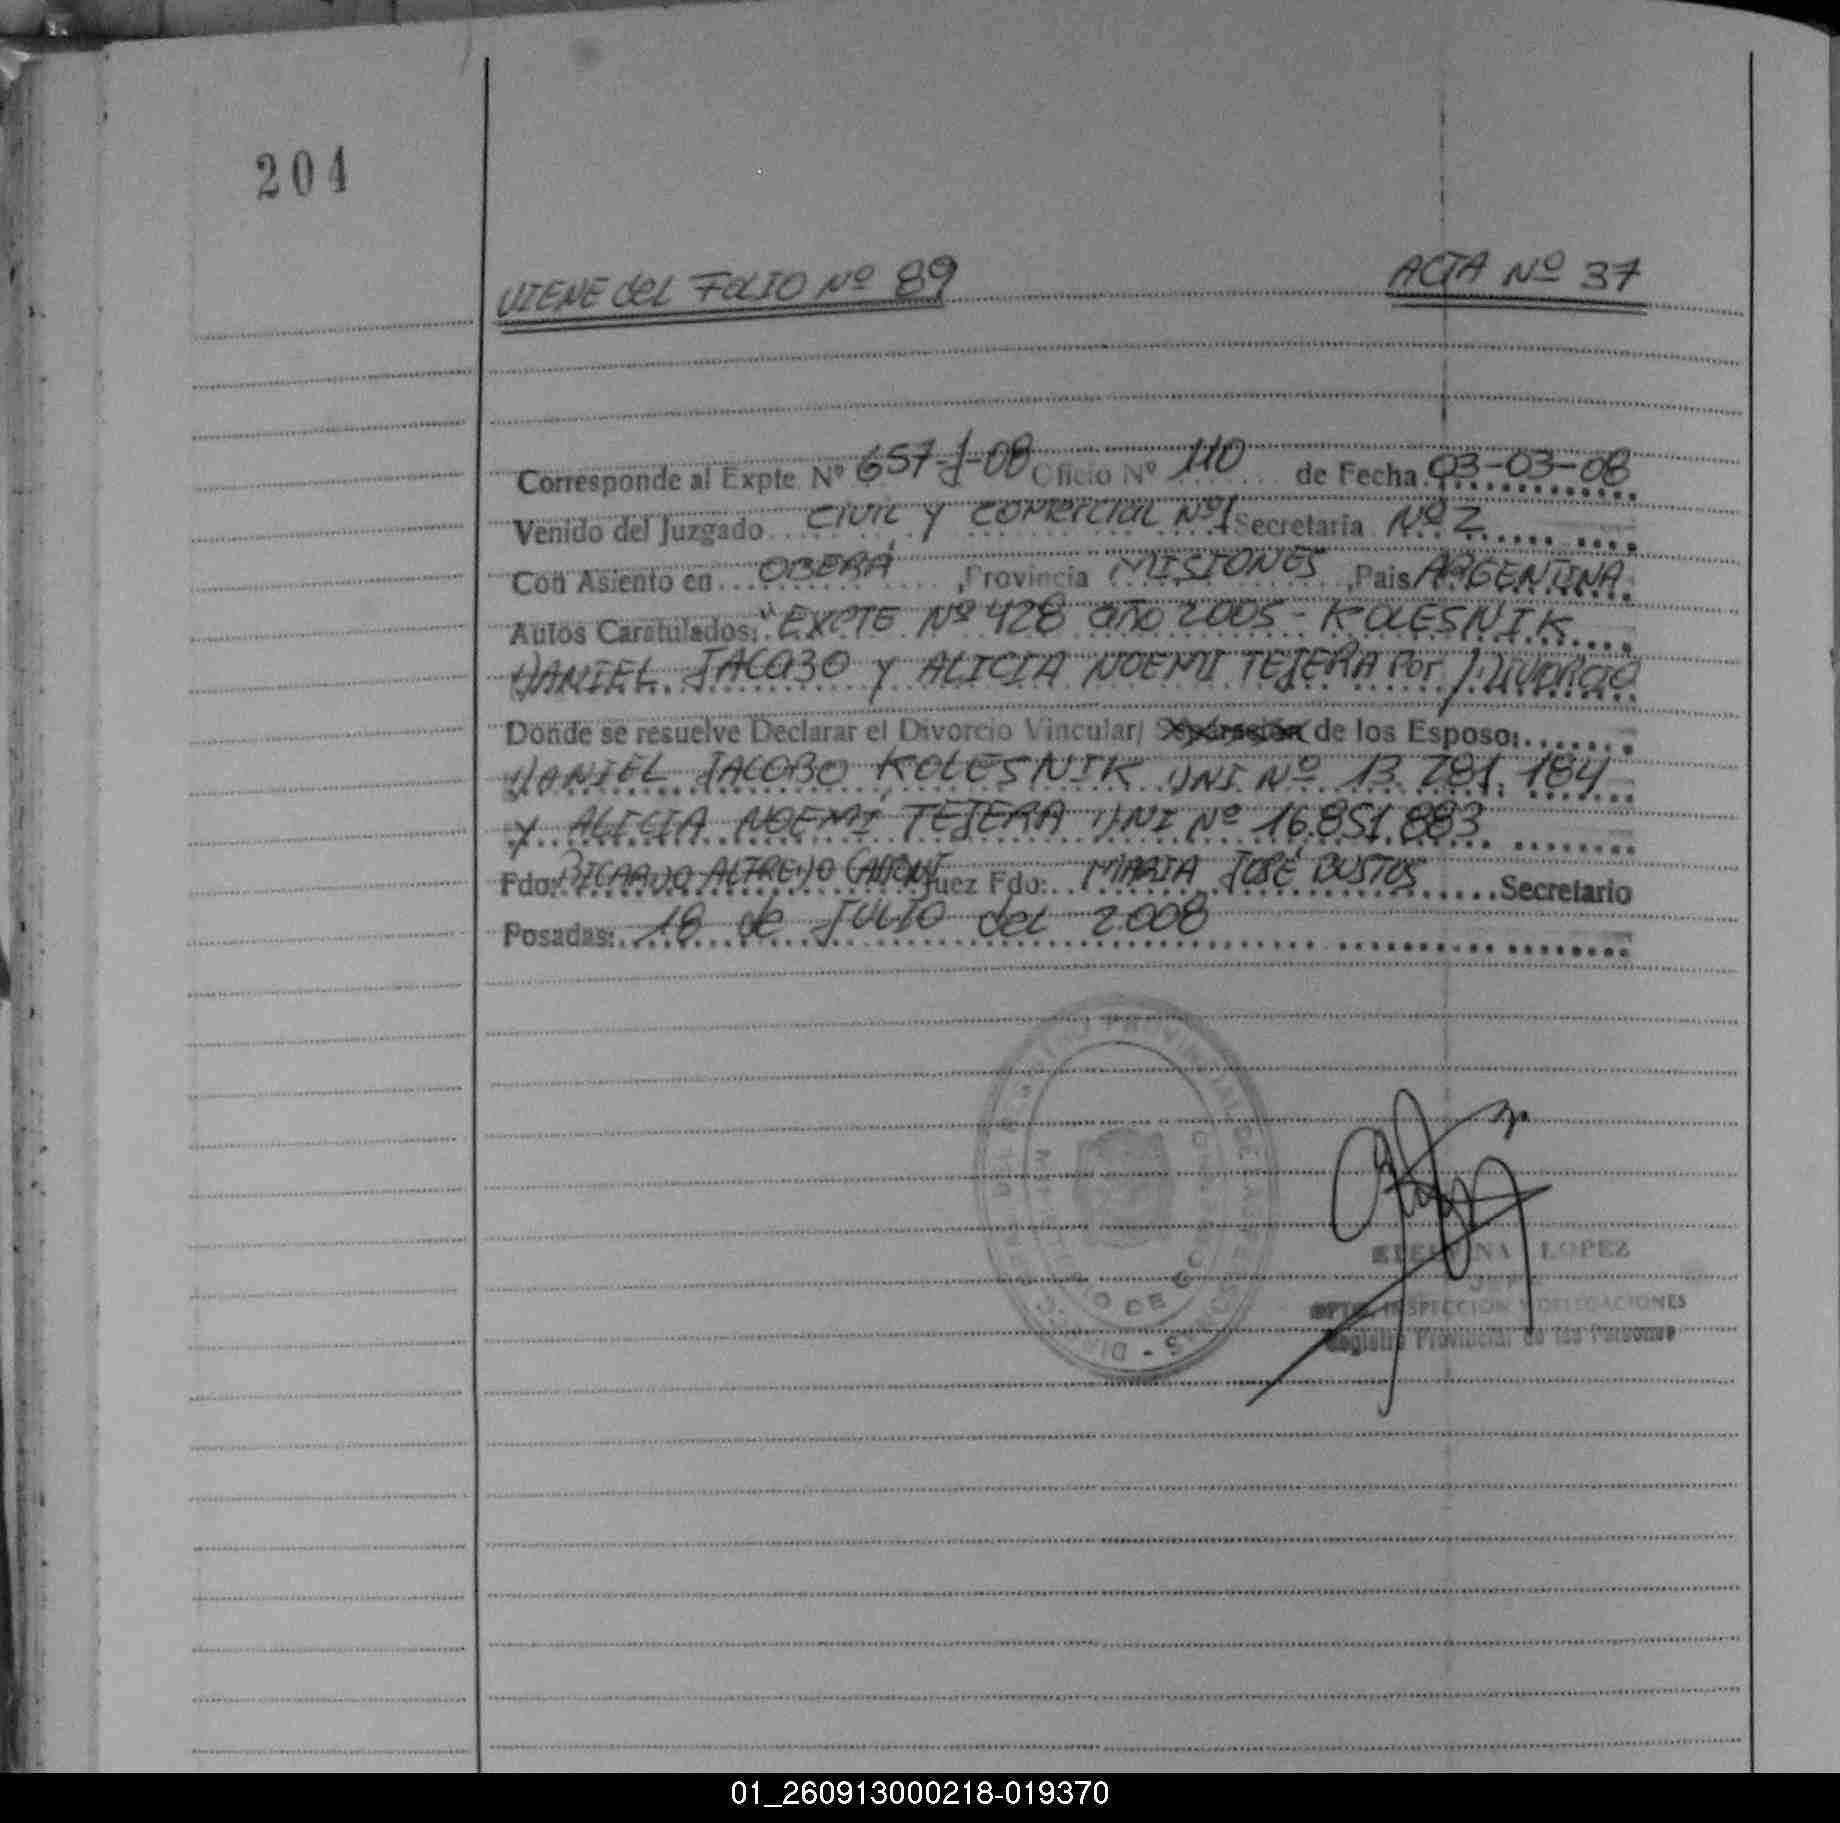 204
VIENE del FOLIO Nº 89 ACTA Nº 37
Corresponde al Expte. Nº 657-J-08 Oficio Nº 110 de Fecha 03-03-08
Venido del Juzgado CIVIL y COMERCIAL Nº1 Secretaría Nº 2
Con Asiento en OBERÁ, Provincia MISIONES, Pais ARGENTINA
Autos Caratulados: "EXPTE Nº 428 año 2005 - KOLESNIK
DANIEL JACOBO y ALICIA NOEMI TEJERA Por / DIVORCIO
Donde se resuelve Declarar el Divorcio Vincular/ Separación de los Esposo:
DANIEL JACOBO KOLESNIK DNI Nº 13.281.184
y ALICIA NOEMÍ TEJERA DNI Nº 16.851.883
Fdo: RICARDO ALFREDO Juez Fdo: MARIA JOSÉ BUSTOS Secretario
Posadas: 18 de JULIO del 2008
LOPEZ
DPTO. INSPECCION Y DELEGACIONES
Registro Provincial de las Personas
01_260913000218-019370